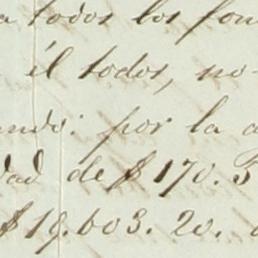 a todos los fon
él todos, no-
ando: por la a
dad de $170.5
$18.603.20. a